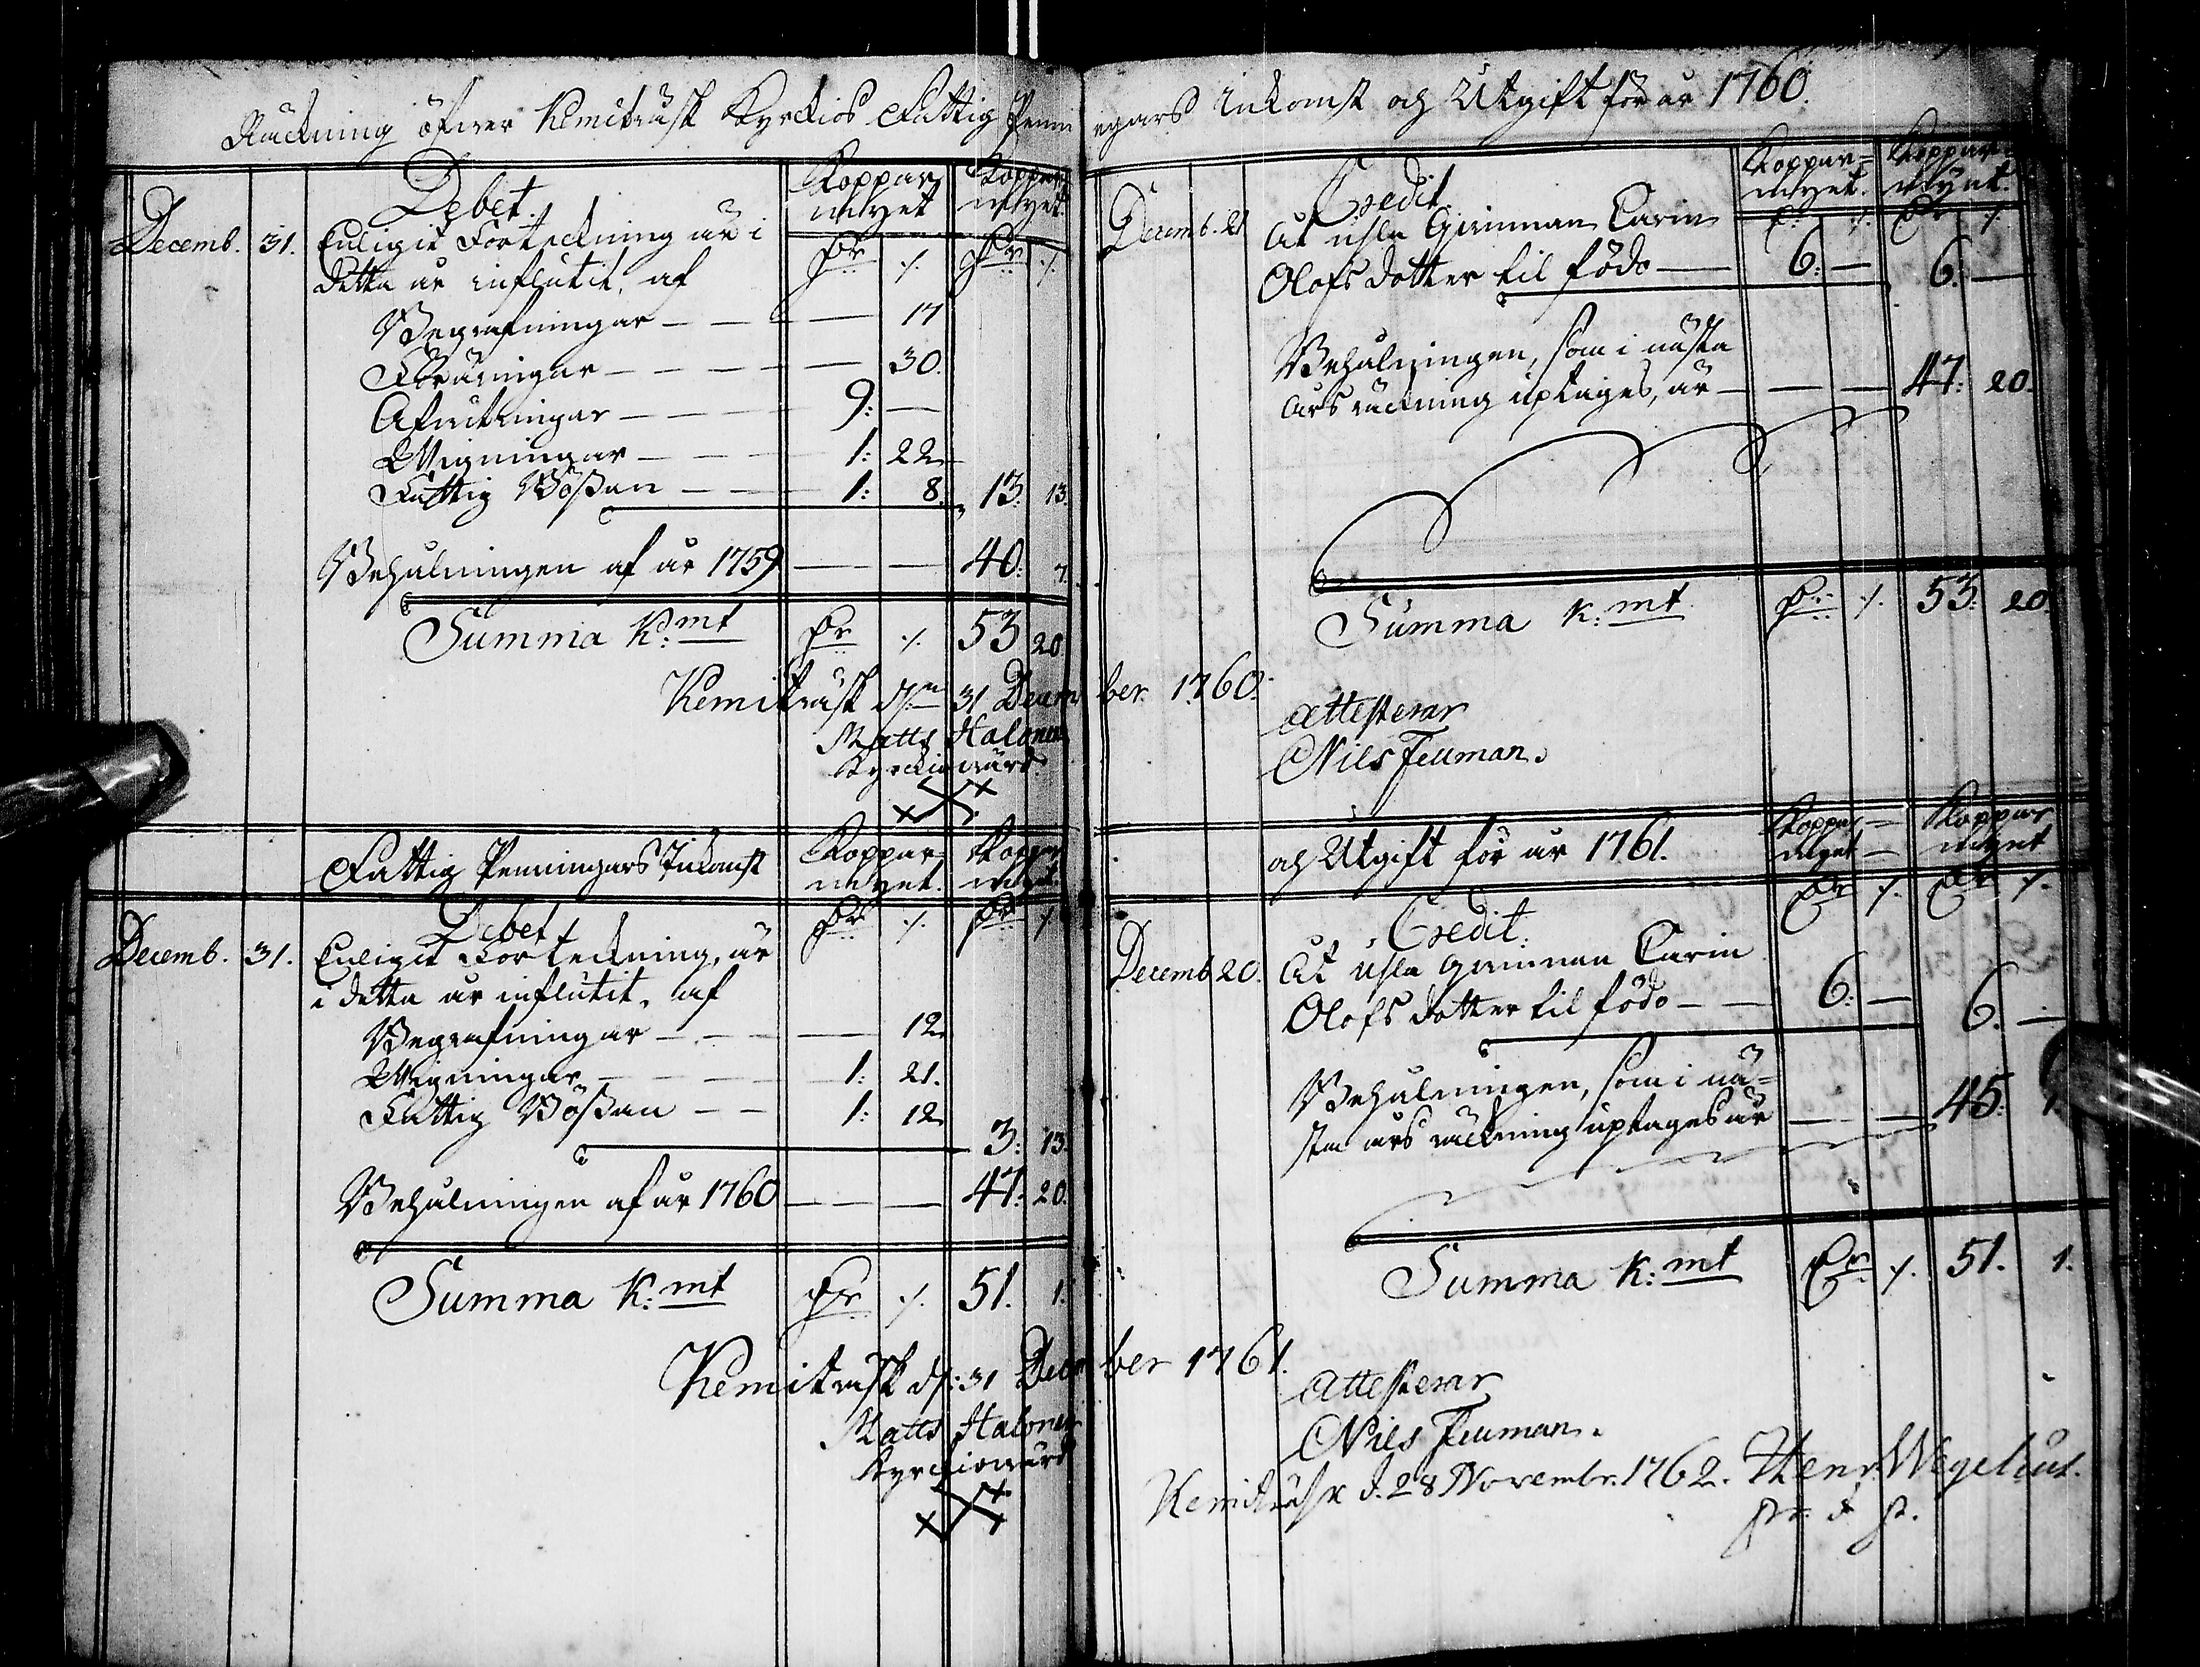 Räckning öfwer Kemiträsk Kyrckios Fattig Penningars Inkomst och Utgift för år 1760.
Debet.
Koppar mynt
Koppar mynt.
Decemb. 31. Enligit Förteckning är i
Dr ⁒ Dr ⁒
detta år influtit, af
Begrafningar — — — 17
Kyrktagningar — — — 30.
Afvittringar — — 9: —
Wigningar — — 1: 22
Fattig Bössan — — 1: 8. 13: 13.
Behålningen af år 1759 — — 40: 7.
Summa K: mt Dr ⁒ 53 20.
Kemiträsk d: 31 December 1760.
Matts Halonen
Kyrckiowärd.
Credit.
Koppar= mynt. Koppar= mynt.
Decemb. 21 Åt usla Qwinnan Carin
Dr ⁒ Dr ⁒
Olofsdotter til föda — 6: — 6. —
Behålningen, som i nästa
års räckning uptages, är — — — 47: 20.
Summa K: mt Dr ⁒ 53: 20.
Attesterar
Nils Feuman.
Fattig Penningars Inkomst och Utgift för år 1761.
Koppar= mynt. Koppar mynt.
Debet.
Dr ⁒ Dr ⁒
Decemb. 31. Enligit Förteckning, är
i detta år influtit, af
Begrafningar — — — 12
Wigningar — — 1: 21.
Fattig Bössan — — 1: 12
3: 13.
Behålningen af år 1760 — — 47: 20.
Summa K: mt Dr ⁒ 51. 1.
Kemiträsk d: 31 December 1761.
Matts Halonen
Kyrckiowärd
Koppar= mynt Koppar mynt
Dr ⁒ Dr ⁒
Credit.
Decemb 20. Åt usla Qwinnan Carin
Olofsdotter til föda — 6: — 6. —
Behålningen, som i nä=
sta års räckning uptages är — — 45: 1.
Summa K: mt Dr ⁒ 51. 1.
Attesterar
Nils Feuman.
Kemiträsk d. 28 Novembr. 1762. Henr. Wegelius.